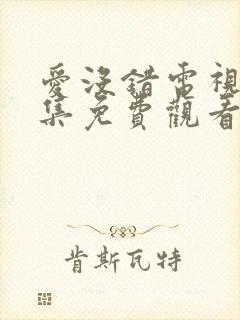 愛沒錯電視
集免費觀看
肯斯瓦特